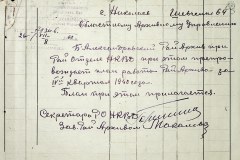 г. Николаев Шевченко 64
Областному Архивному Управлению
Б. Александровский Рай Архив при
Рай Отделе НКВД при этом препро-
вождает план работы Рай Архива за
IV квартал 1940 года.
План при этом прилагается.
Секретарь РО НКВД
Зав. Рай Архивом